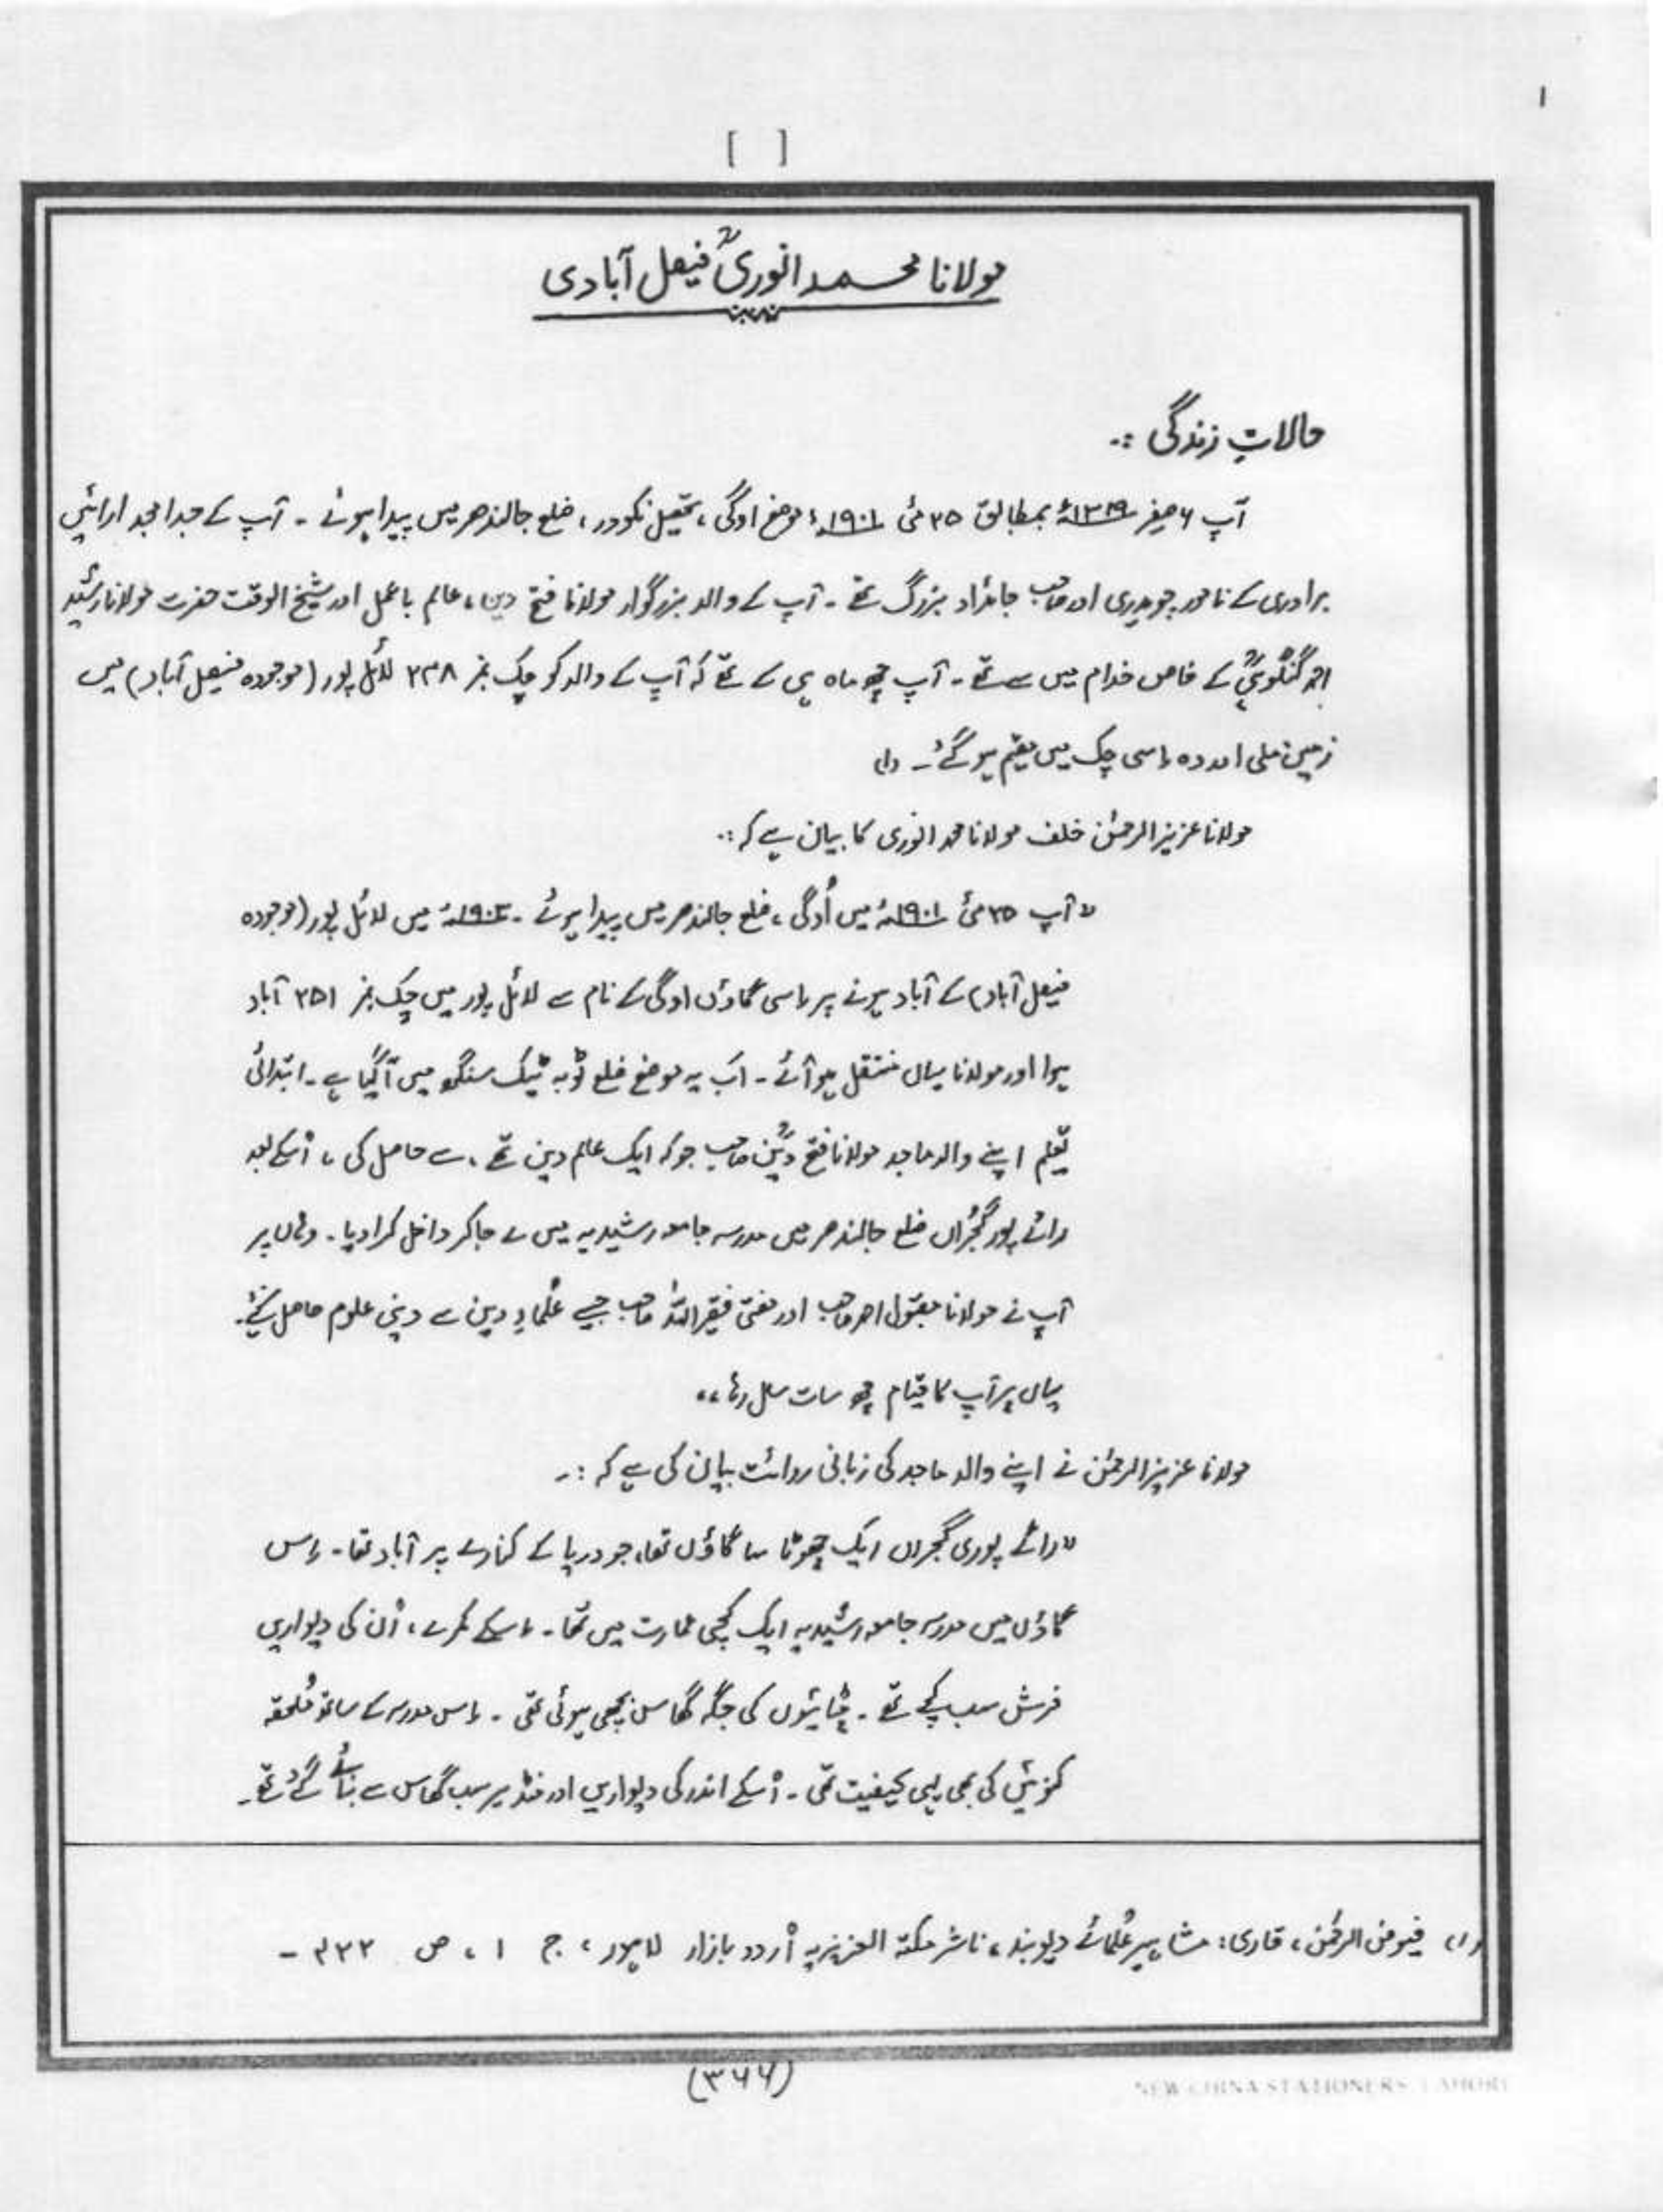 ۱
[ ]
مولانا محمد انوریؒ فیصل آبادی
حالاتِ زندگی :۔
آپ ۶ صفر ۱۳۱۹ھ بمطابق ۲۵ مئی ۱۹۰۱ء موضع اوگی، تحصیل نکودر، ضلع جالندھر میں پیدا ہوئے ۔ آپ کے جدا مجد ارائیں
برادری کے نامور چوہدری اور صاحب جائداد بزرگ تھے ۔ آپ کے والد بزرگوار مولانا فتح دین، عالم باعمل اور شیخ الوقت حضرت مولانا رشید
احمد گنگوہیؒ کے خاص خدام میں سے تھے ۔ آپ چھ ماہ ہی کے تھے کہ آپ کے والد کو چک نمبر ۲۴۸ لائل پور (موجودہ فیصل آباد) میں
زمین ملی اور وہ اسی چک میں مقیم ہو گئے ۔ (۱)
مولانا عزیز الرحمٰن خلف مولانا محمد انوری کا بیان ہے کہ :۔
" آپ ۲۵ مئی ۱۹۰۱ء میں اُوگی، ضلع جالندھر میں پیدا ہوئے ۔ میں لائل پور (موجودہ
فیصل آباد) کے آباد ہونے پر اسی گاؤں اوگی کے نام سے لائل پور میں چک نمبر ۲۵۱ آباد
ہوا اور مولانا یہاں منتقل ہو آئے ۔ اَب یہ موضع ضلع ٹوبہ ٹیک سنگھ میں آ گیا ہے ۔ ابتدائی
تعلیم اپنے والد ماجد مولانا فتح دینؒ صاحب جو کہ ایک عالم دین تھے، سے حاصل کی ، اُسکے بعد
رائے پور گجراں ضلع جالندھر میں مدرسہ جامعہ رشیدیہ میں لے جا کر داخل کرا دیا ۔ وہاں پر
آپ نے مولانا مقبول احمد صاحب اور مفتی فقیر اللہ صاحب جیسے عُلماءِ دین سے دینی علوم حاصل کیے۔
یہاں پر آپ کا قیام چھ سات سال رہا ،،
مولانا عزیز الرحمٰن نے اپنے والد ماجد کی زبانی روائت بیان کی ہے کہ :۔
" رائے پوری گجراں ایک چھوٹا سا گاؤں تھا، جو دریا کے کنارے پر آباد تھا ۔ اِس
گاؤں میں مدرسہ جامعہ رشیدیہ ایک کچی عمارت میں تھا ۔ اسکے کمرے، اُن کی دیواریں
فرش سب کچے تھے ۔ چٹائیوں کی جگہ گھاس بچھی ہوئی تھی ۔ اِس مدرسہ کے ساتھ مُلحقہ
کنوئیں کی بھی یہی کیفیت تھی ۔ اُسکے اندر کی دیواریں اور منڈیر سب گھاس سے بنائے گئے تھے ۔
(۱) فیوض الرحمٰن، قاری: مشاہیر عُلمائے دیوبند، ناشر مکتبہ العزیزیہ اُردو بازار لاہور، ج ۱ ، ص
(۳۶۶)
NEW CHINA STATIONERS LAHORE